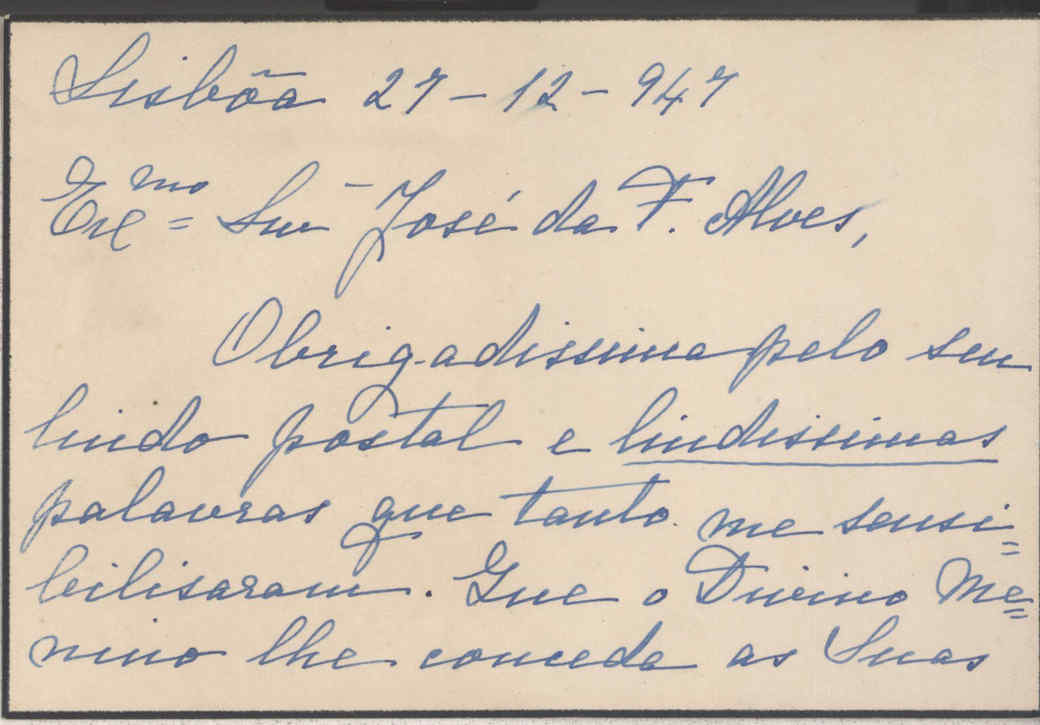 Lisbôa 27-12-947
Exmo= Snr José da F. Alves,
Obrigadissima pelo seu
lindo postal e lindissimas
palavras que tanto me sensi=
bilisaram. Que o Divino Me=
nino lhe conceda as Suas